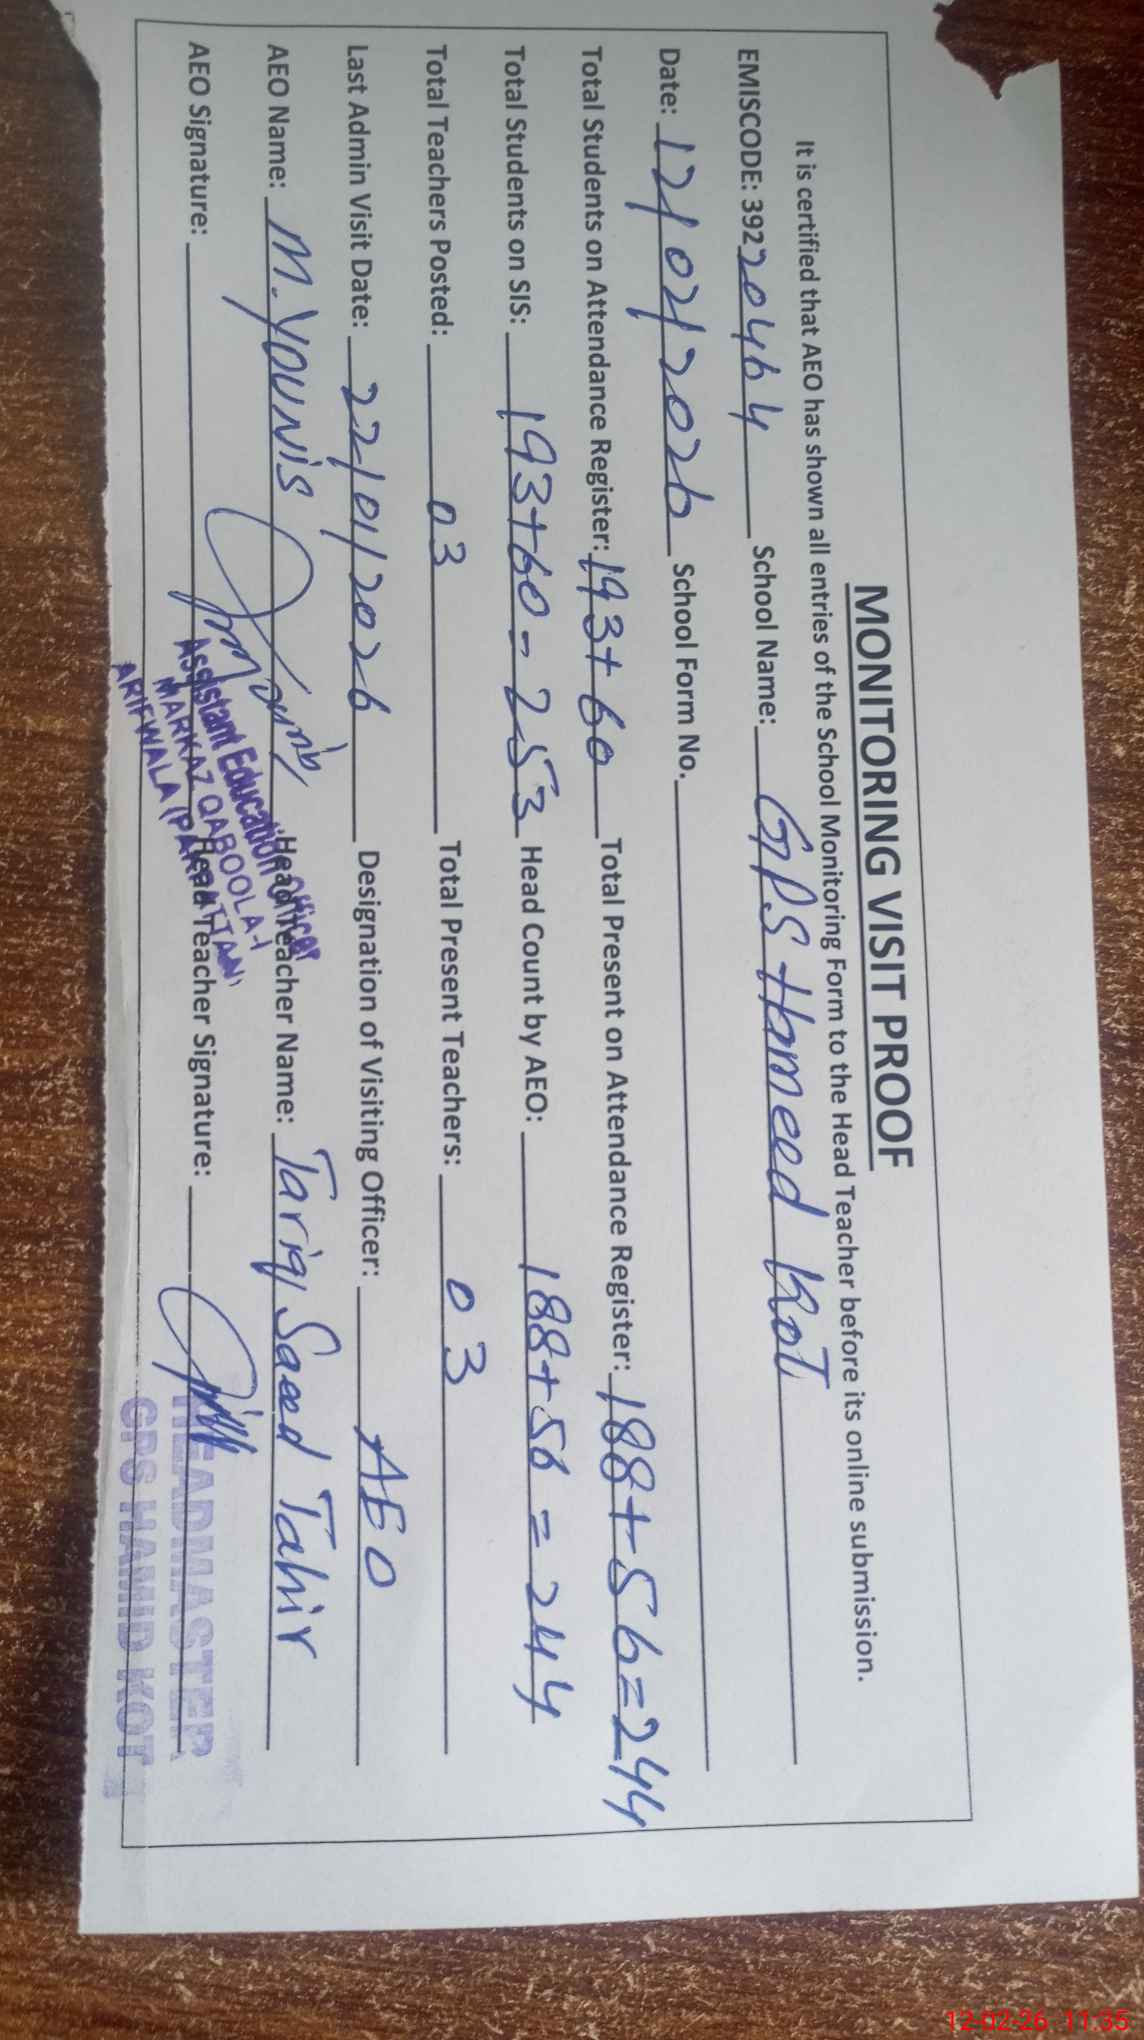 MONITORING VISIT PROOF
It is certified that AEO has shown all entries of the School Monitoring Form to the Head Teacher before its online submission.
EMISCODE: 39220464 School Name: GPS Hameed KoT
Date: 12/02/2026 School Form No.
Total Students on Attendance Register: 193+60 Total Present on Attendance Register: 188+56=244
Total Students on SIS: 193+60-253 Head Count by AEO: 188+56=244
Total Teachers Posted: 03 Total Present Teachers: 03
Last Admin Visit Date: 22/01/2026 Designation of Visiting Officer: AEO
AEO Name: M. YOUNIS Head Teacher Name: Tariq Saeed Tahir
AEO Signature: Head Teacher Signature:
Assistant Education Officer
MARKAZ QABOOLA-I
ARIFWALA (PAKPATTAN)
HEADMASTER
GPS HAMID KOT
12-02-26 11:35